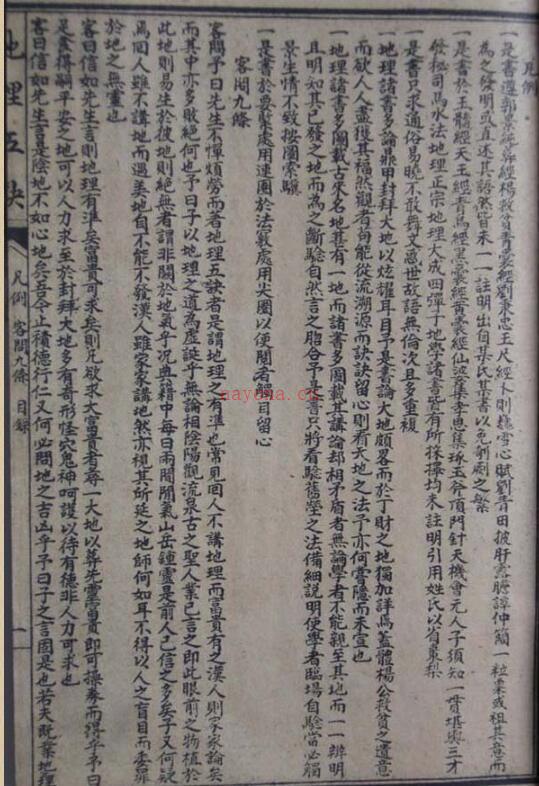 凡例
一是書遵郭景純葬經楊救貧青囊經劉秉忠玉尺經卜則巍雪心賦劉青田披肝露膽譚仲簡一粒粟或祖其意而
為之發明或直述其語然皆未一一註明出自某氏某書以免剞劂之繁
一是書於玉髓經天王經青烏經黑囊經黃囊經仙婆集孝思集琢玉斧頂門針天機會元人子須知一貫堪輿三才
發秘司馬水法地理正宗地理大成四彈子地學諸書皆有所採擇均未註明引用姓氏以省棗梨
一是書只求通俗易曉不敢舞文惑世故語無倫次且多重複
一地理諸書多論鼎甲封拜大地以炫耀耳目予是書論大地頗畧而於丁財之地獨加詳焉蓋體楊公救貧之遺意
而欲人人盡獲其福然觀者苟能從流溯源而訣訣留心則看大地之法予亦何嘗隱而未宣也
一地理諸書多圖載古來名地甚有一地而諸書多圖載其講論却相矛盾者無論學者不能親至其地而一一辨明
且明知其已發之地而為之斷驗自然言之脗合予是書只將看驗舊塋之法備細說明使學者臨場自驗當必觸
景生情不致按圖索驥
一是書於要緊處用連圈於法竅處用尖圈以便閱者觸目留心
客問九條
客問予曰先生不憚煩勞而著地理五訣者是謂地理之有準也常見回人不講地理而富貴有之漢人則家家論矣
而其中亦多敗絕何也予曰子以地理之道為虛誕乎無論相陰陽觀流泉古之聖人業已言之即此眼前之物植於
此地則易生於彼地則絕無者謂非關於地氣乎况典籍中每曰兩間閒氣山岳鍾靈是前人已信之多矣子又何疑
焉回人雖不講地而遇美地自不能不發漢人雖家家講地然亦視其所延之地師何如耳不得以人之盲目而委罪
於地之無靈也
客曰信如先生言則地理有準矣富貴可求矣則凡欲求大富貴者尋一大地以葬先靈富貴即可操券而得乎予曰
是盖得嗣平安之地可以人力求至於封拜大地多有奇形怪穴鬼神呵護以待有德非人力可求也
客曰信如先生言是陰地不如心地矣吾今止積德行仁又何必問地之吉凶乎予曰子之言固是也若夫既業地理
地理五訣
凡例 客問九條 目錄
一
nayona.cn